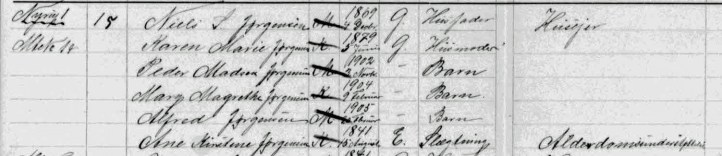 15 Niels J. Jørgensen M 1869 G. Husfader Husejer
Karen Marie Jørgensen K 1879 G Husmoder
Peder Madsen Jørgensen M 1902 - Barn
Marg Magrethe Jørgensen K 1904 9 Februar - Barn
Alfred Jørgensen M 1905 - Barn
Ane Kirstine Jørgensen K 1841 15 August E. Slægtning Alderdomsunderstøttelse